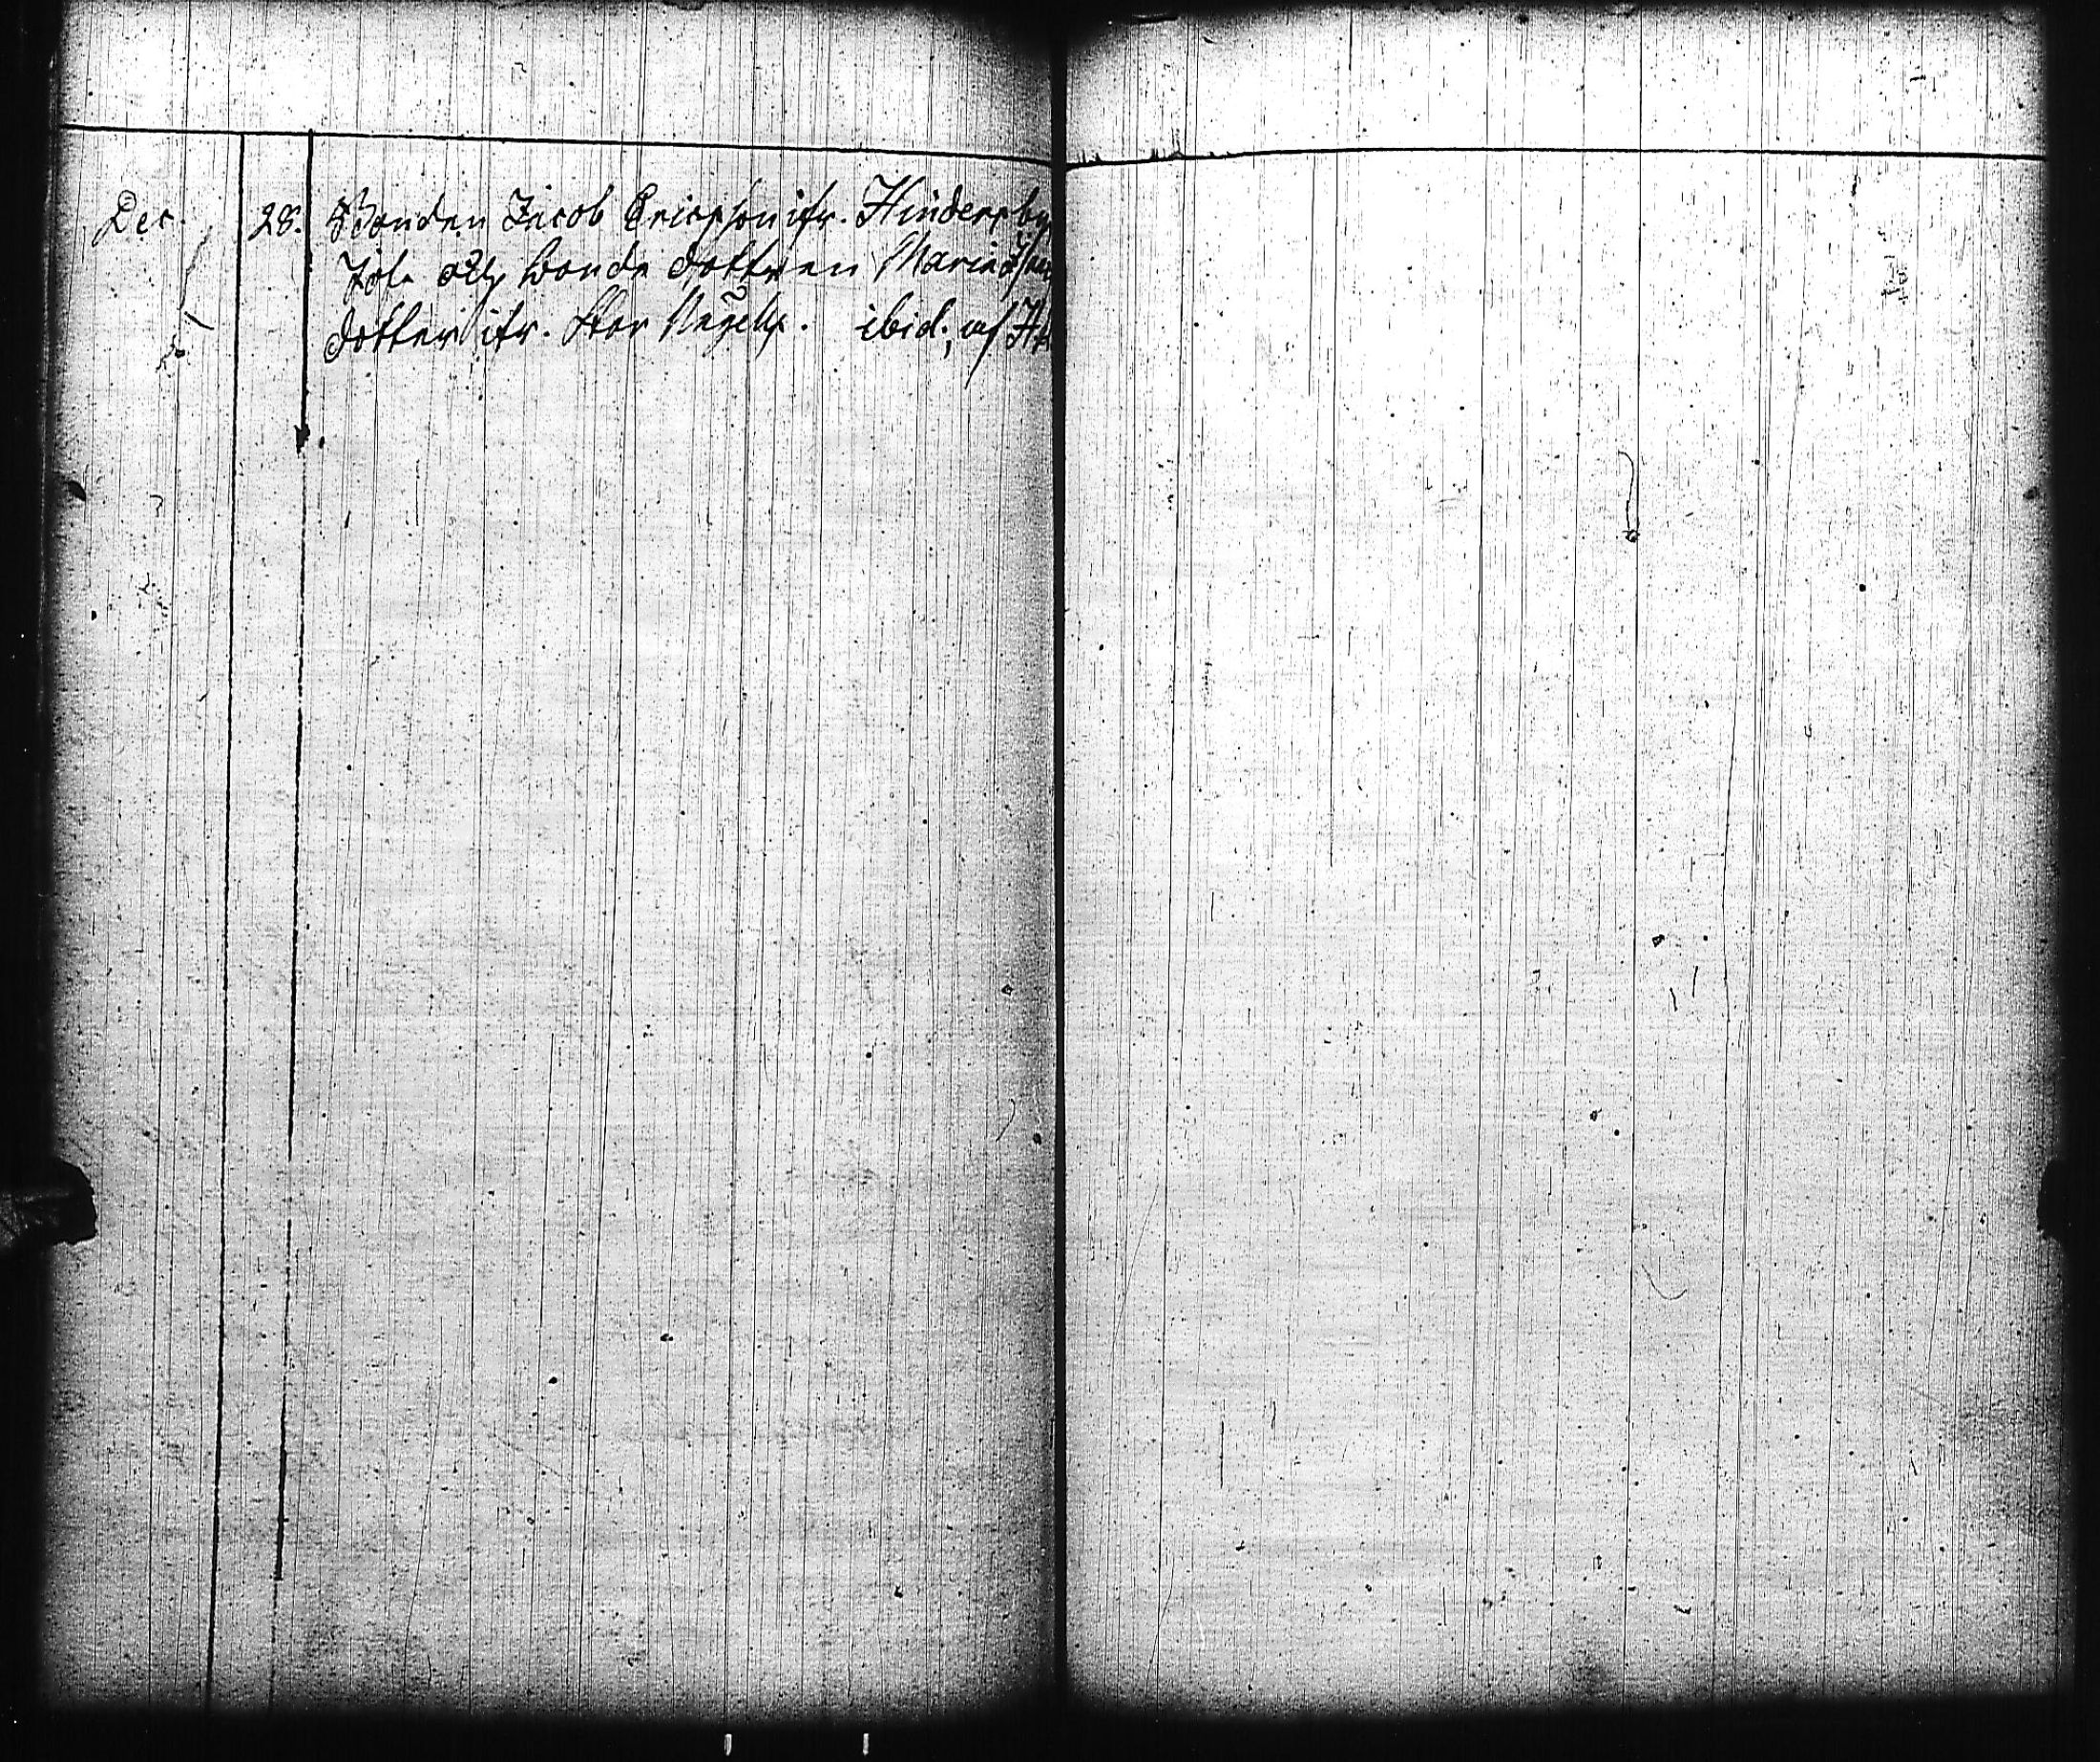 Dec. 28. Bonden Jacob Ericsson ifr. Hindersby
och bonde dottren Maria
dotter ifr. Stor ibid; af